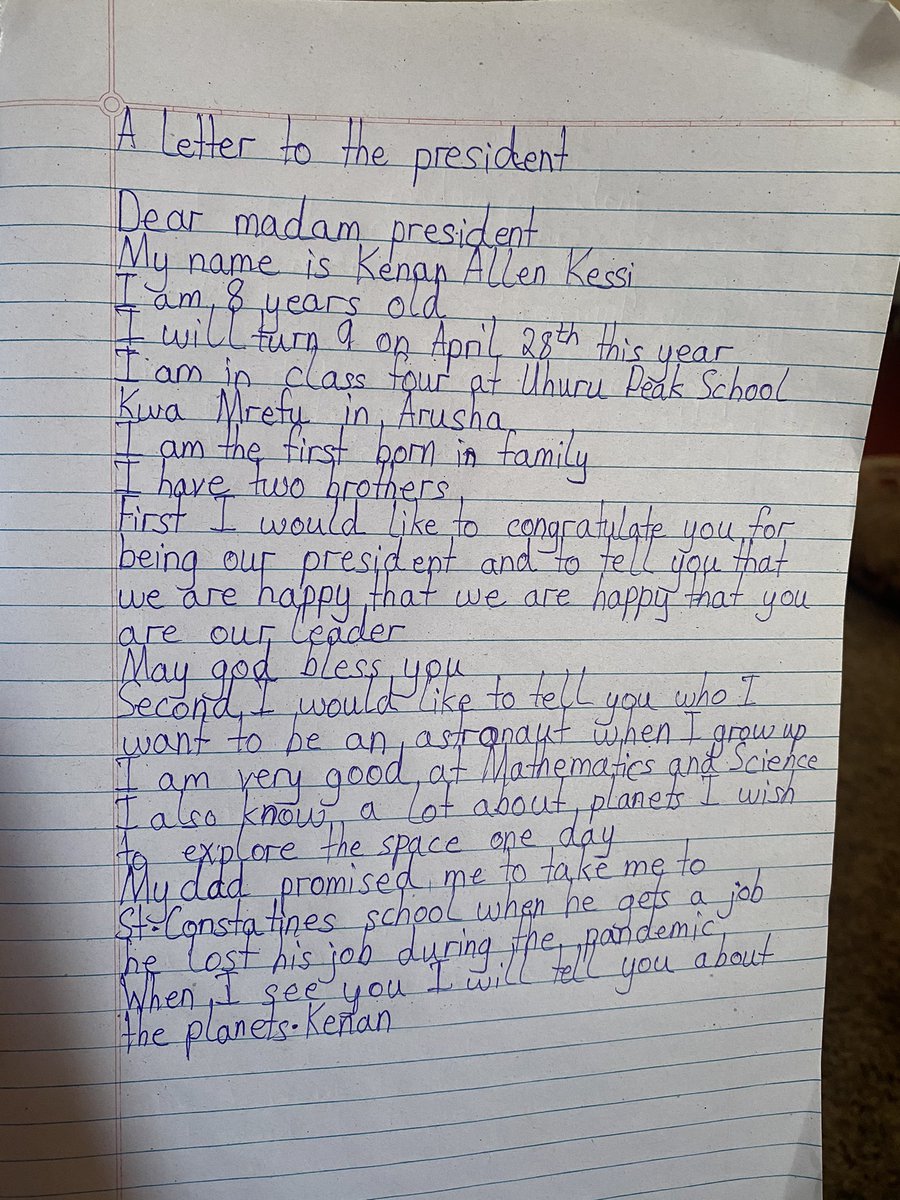 A Letter to the president
Dear madam president
My name is Kenan Allen Kessi
I am 8 years old
I will turn 9 on April 28th this year
I am in class four at Uhuru Peak School
Kwa Mrefu in Arusha
I am the first born in family
I have two brothers
First I would like to congratulate you for
being our president and to tell you that
we are happy that we are happy that you
are our leader
May god bless you
Second I would like to tell you who I
want to be an astronaut when I grow up
I am very good at Mathematics and Science
I also know a lot about planets I wish
to explore the space one day
My dad promised me to take me to
St-Constatines school when he gets a job
he lost his job during the pandemic
When I see you I will tell you about
the planets.Kenan